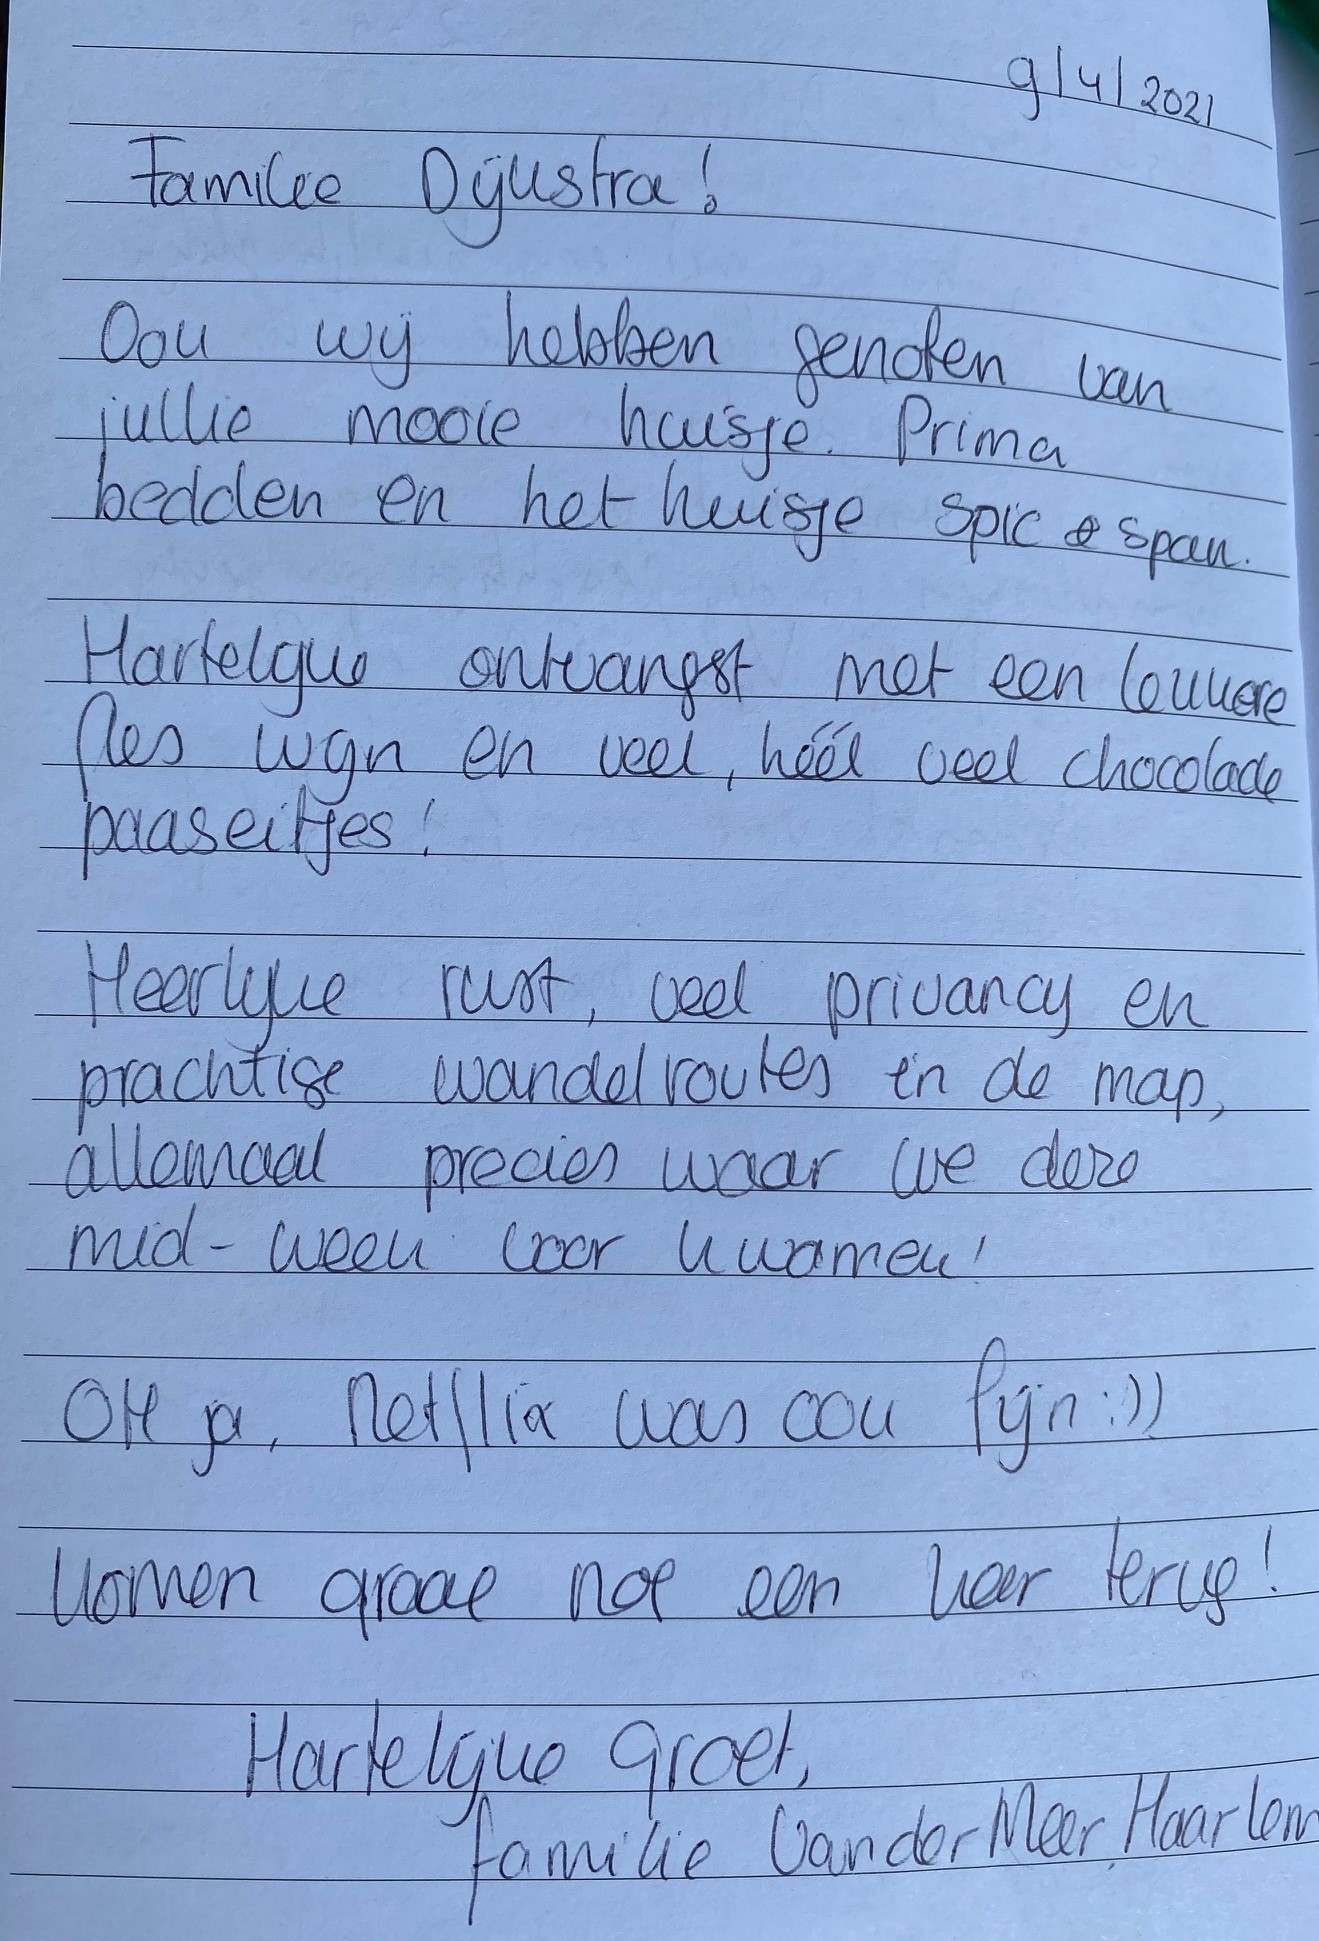 9/4/2021
Familie Dijkstra!
Ook wij hebben genoten van
jullie mooie huisje. Prima
bedden en het huisje spic & span.
Hartelijke ontvangst met een lekkere
fles wijn en veel, héél veel chocolade
paaseitjes!
Heerlijke rust, veel privancy en
prachtige wandelroutes in de map,
allemaal precies waar we deze
mid-week voor kwamen!
OH ja, Netflix was ook fijn :))
Komen graag nog een keer terug!
Hartelijke groet,
familie Van der Meer, Haarlem